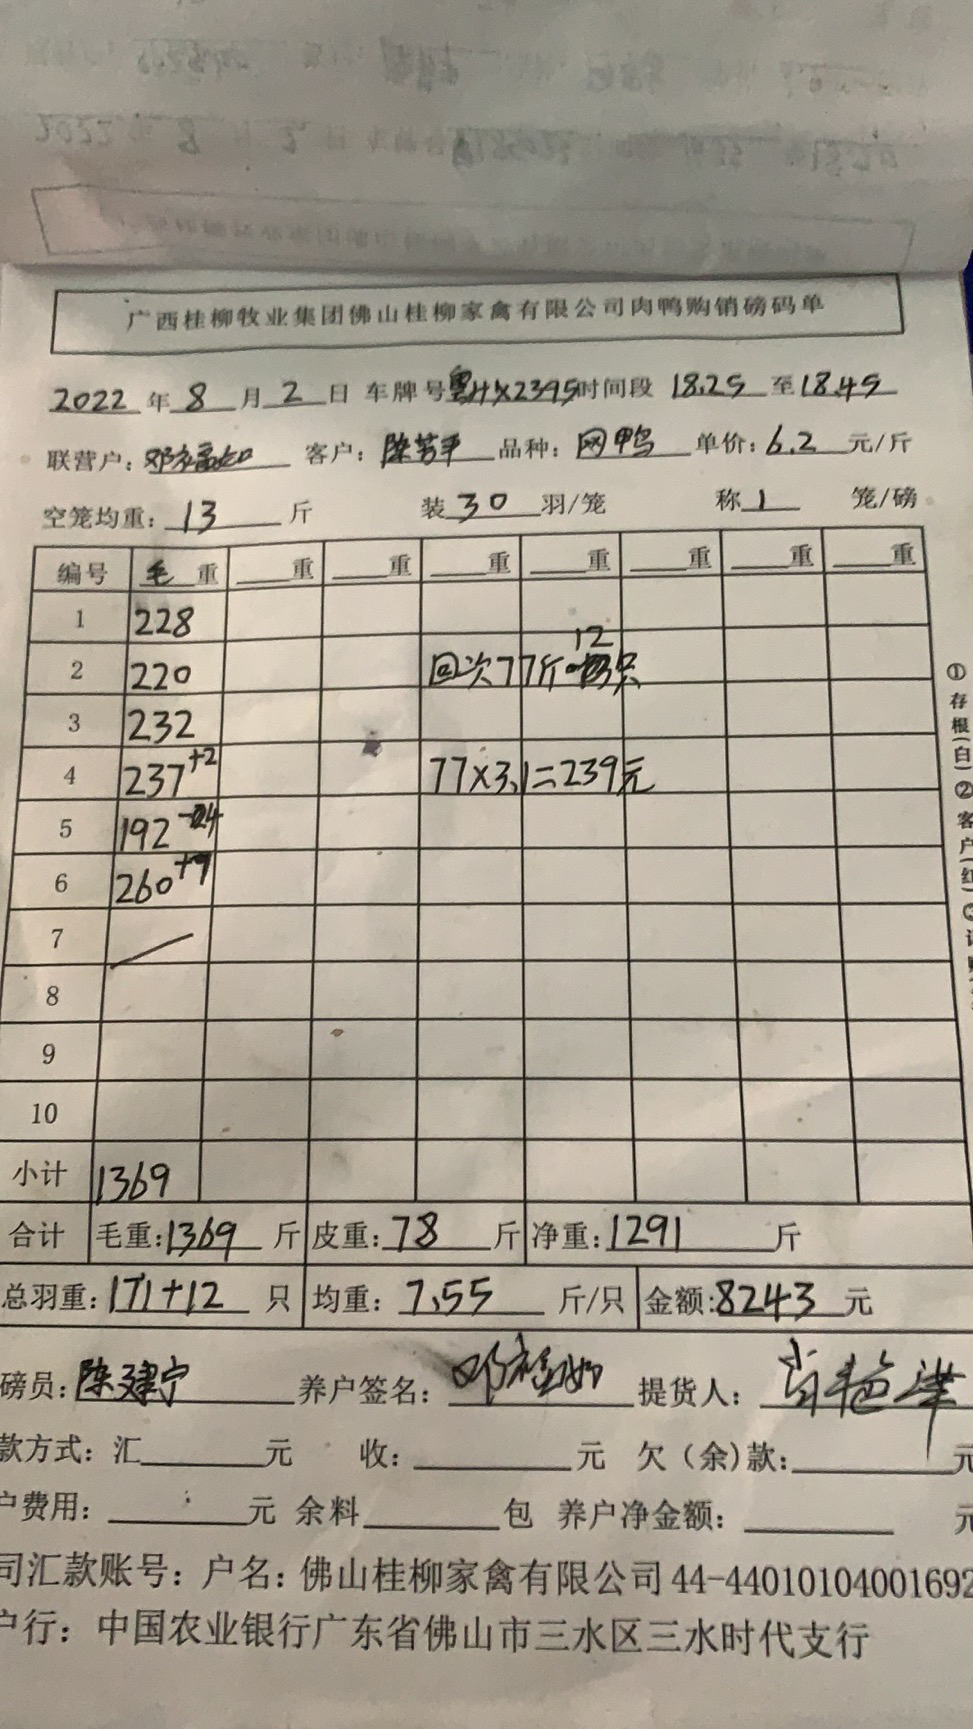 广西桂柳牧业集团佛山桂柳家禽有限公司肉鸭购销磅码单
2022年8月2日 车牌号粤HX2395时间段 18.25 至18.45
联营户: 客户: 陈芳平 品种: 网鸭 单价: 6.2 元/斤
空笼均重: 13 斤 装30羽/笼 称1 笼/磅
编号 毛重 重 重 重 重 重 重 重
1 228
2 220 回次77斤 12只
3 232
4 237+2 77×3.1=239元
5 192-24
6 260+9
7
8
9
10
小计 1369
合计 毛重:1369 斤 皮重:78 斤 净重:1291 斤
总羽重: 171+12 只 均重: 7.55 斤/只 金额:8243 元
磅员: 陈建宁 养户签名: 提货人:
款方式: 汇 元 收: 元 欠(余)款: 元
户费用: 元 余料 包 养户净金额: 元
司汇款账号: 户名: 佛山桂柳家禽有限公司 44-44010104001692
户行: 中国农业银行广东省佛山市三水区三水时代支行
①存根(白)②客户(红)